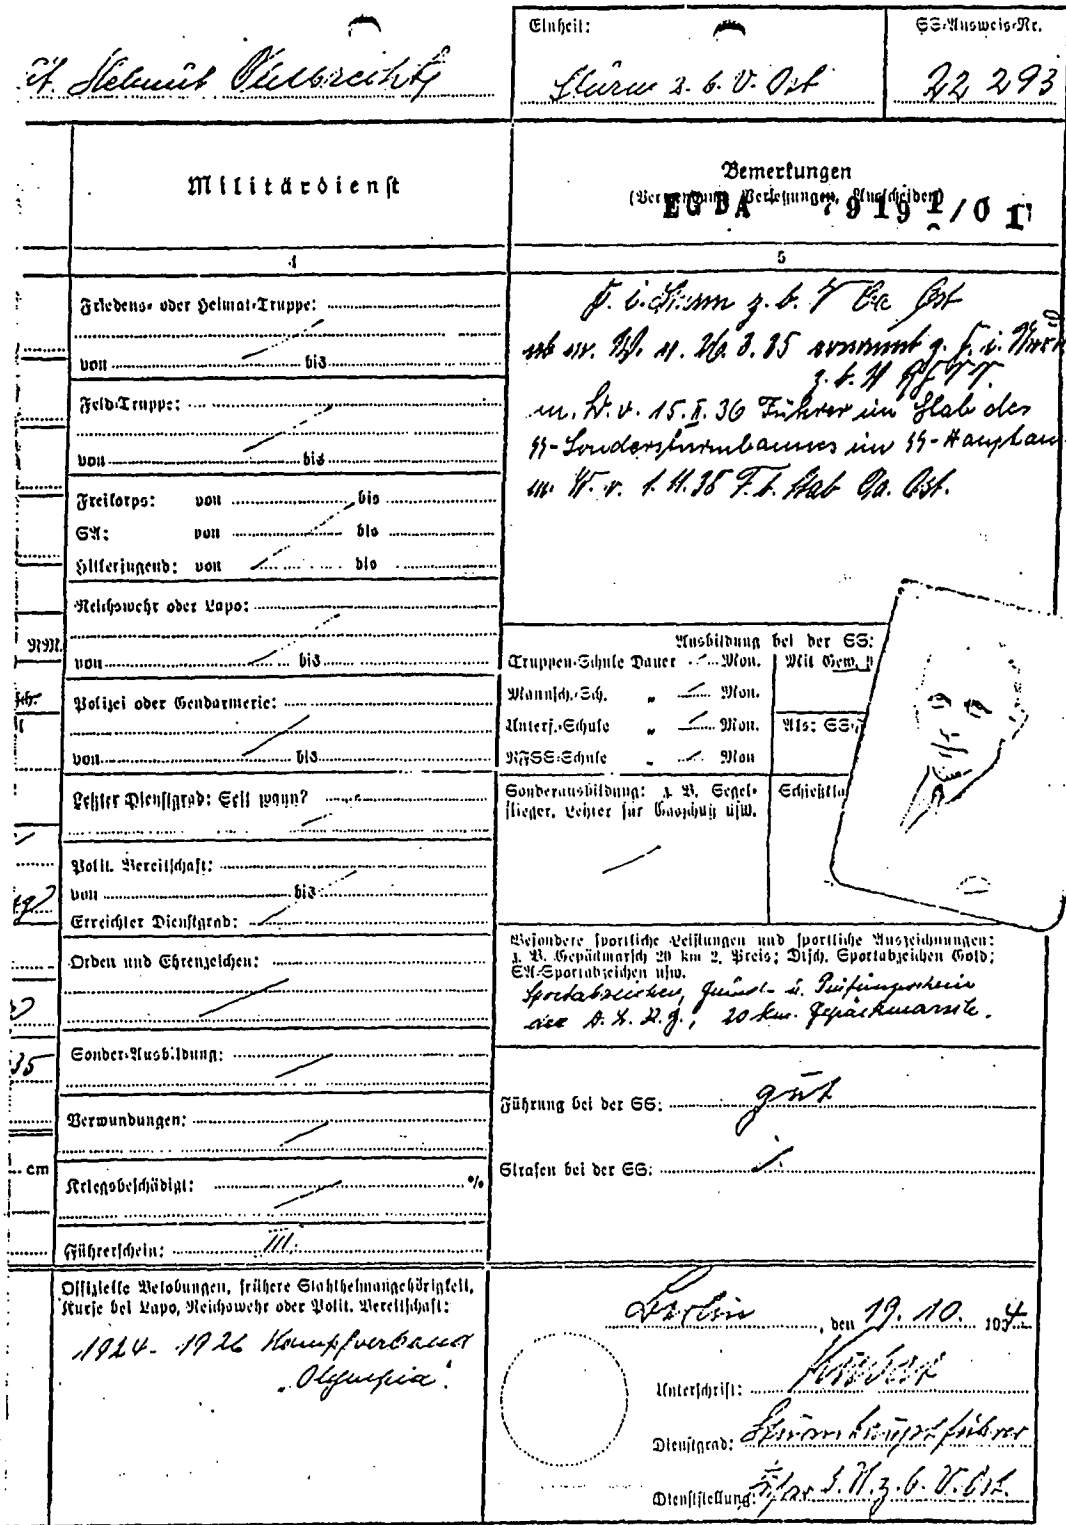 Helmut
Einheit:
Sturm z. b. V. Ost
SS-Ausweis-Nr.
22 293
Militärdienst
4
Friedens- oder Heimat-Truppe:
von bis
Feld-Truppe:
von bis
Freikorps: von bis
SA: von bis
Hitlerjugend: von bis
Reichswehr oder Lapo:
von bis
Polizei oder Gendarmerie:
von bis
Letzter Dienstgrad: Seit wann?
Polit. Bereitschaft:
von bis
Erreichter Dienstgrad:
Orden und Ehrenzeichen:
Sonder-Ausbildung:
Verwundungen:
Kriegsbeschädigt: %
Führerschein: III.
Offizielle Belobungen, frühere Stahlhelmangehörigkeit,
Kurse bei Lapo, Reichswehr oder Polit. Bereitschaft:
1924 - 1926 Kampfverband
"Olympia".
35
cm
Bemerkungen
(Verwendung, Verletzungen, Ausscheiden)
EGBA 7919 /01
5
F. i. Sturm z. b. V Ost
26.3.35 ernannt z. F. i.
z. b. V RFSS.
m. W. v. 15. 36 Führer im Stab des
SS-Sondersturmbannes im SS-Hauptam
m. W. v. 1.11.36 F. i. Stab Oa. Ost.
Ausbildung bei der SS:
Truppen-Schule Dauer Mon.
Mit Gew.
Mannsch.-Sch. " Mon.
Unterf.-Schule " Mon.
Als: SS-
RFSS-Schule " Mon
Sonderausbildung: z. B. Segel-
flieger, Lehrer für Gasschutz usw.
Besondere sportliche Leistungen und sportliche Auszeichnungen:
z. B. Gepäckmarsch 20 km 2. Preis; Dtsch. Sportabzeichen Gold;
SA-Sportabzeichen usw.
Sportabzeichen, Grund- u. Prüfungsschein
der D. L. R. G., 20 km. Gepäckmarsch.
Führung bei der SS: gut
Strafen bei der SS: ./.
Berlin, den 19. 10. 1934
Unterschrift:
Dienstgrad: Sturmhauptführer
Dienststellung: z. b. V. Ost.